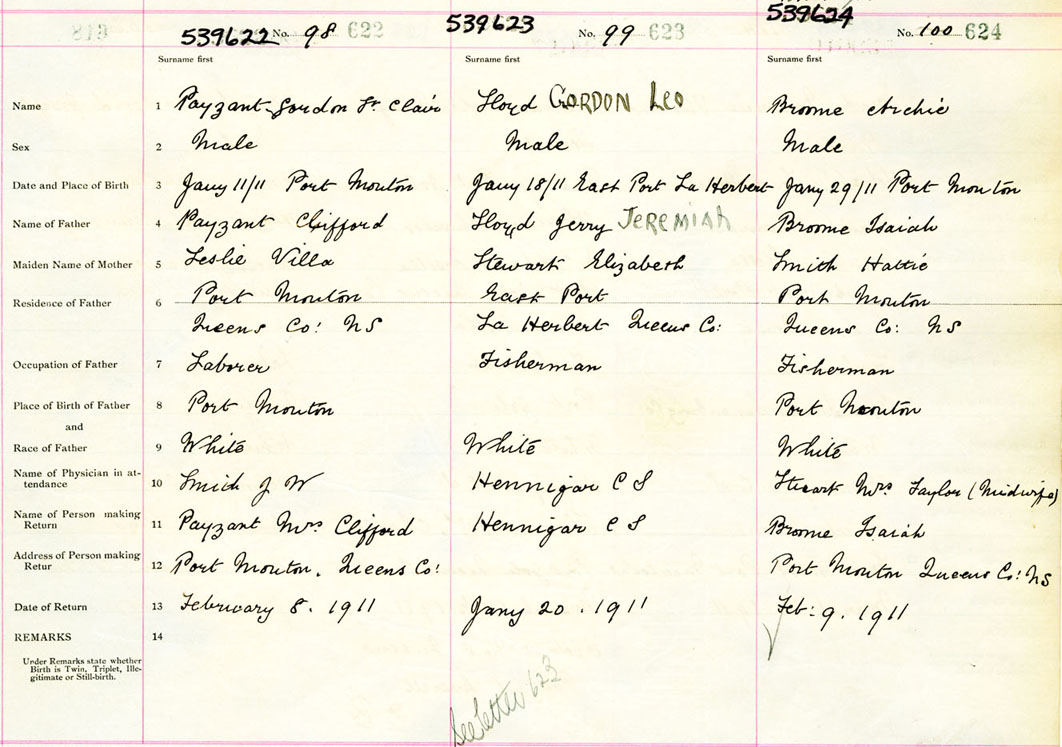 539622 No. 98 622 539623 No. 99 623 539624 No. 100 624
Surname first Surname first Surname first
Name 1 Payzant Gordon St Clair Lloyd GORDON Leo Broome Archie
Sex 2 Male Male Male
Date and Place of Birth 3 Jany 11/11 Port Mouton Jany 18/11 East Port La Herbert Jany 29/11 Port Mouton
Name of Father 4 Payzant Clifford Lloyd Jerry JEREMIAH Broome Isaiah
Maiden Name of Mother 5 Leslie Villa Stewart Elizabeth Smith Hattie
Residence of Father 6 Port Mouton East Port Port Mouton
Queens Co: NS La Herbert Queens Co: Queens Co: NS
Occupation of Father 7 Laborer Fisherman Fisherman
Place of Birth of Father 8 Port Mouton Port Mouton
and
Race of Father 9 White White White
Name of Physician in at-
tendance 10 Smith J W Hennigar C S Stewart Mrs Taylor (Midwife)
Name of Person making
Return 11 Payzant Mrs Clifford Hennigar C S Broome Isaiah
Address of Person making
Retur 12 Port Mouton. Queens Co: Port Mouton Queens Co: NS
Date of Return 13 February 8. 1911 Jany 20. 1911 Feb: 9. 1911
REMARKS 14
Under Remarks state whether
Birth is Twin, Triplet, Ille-
gitimate or Still-birth.
See letter 623